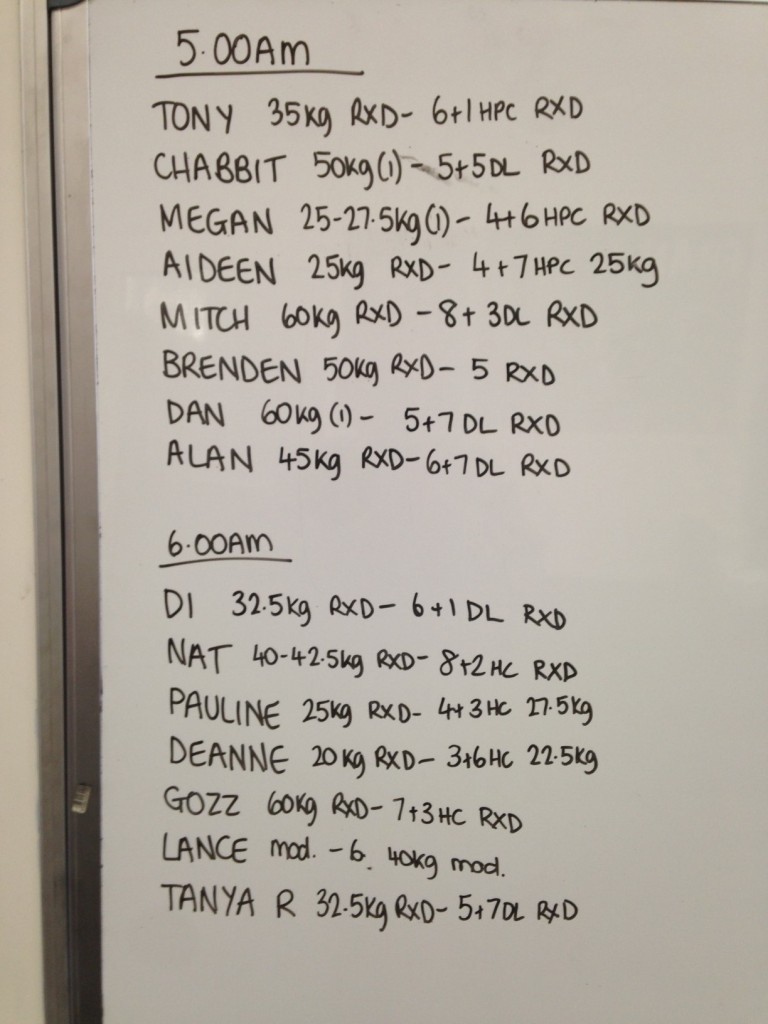 5.00AM
TONY 35kg RXD- 6+1 HPC RXD
CHABBIT 50kg(1) - 5+5DL RXD
MEGAN 25-27.5kg(1) - 4+6 HPC RXD
AIDEEN 25kg RXD- 4+7 HPC 25kg
MITCH 60kg RXD - 8+ 3DL RXD
BRENDEN 50kg RXD- 5 RXD
DAN 60kg (1) - 5+7 DL RXD
ALAN 45kg RXD-6+7 DL RXD
6.00AM
DI 32.5kg RXD- 6+1 DL RXD
NAT 40-42.5kg RXD- 8+2 HC RXD
PAULINE 25kg RXD- 4+3 HC 27.5kg
DEANNE 20kg RXD- 3+6HC 22.5kg
GOZZ 60kg RXD- 7+3 HC RXD
LANCE mod. - 6. 40kg mod.
TANYA R 32.5kg RXD- 5+7DL RXD